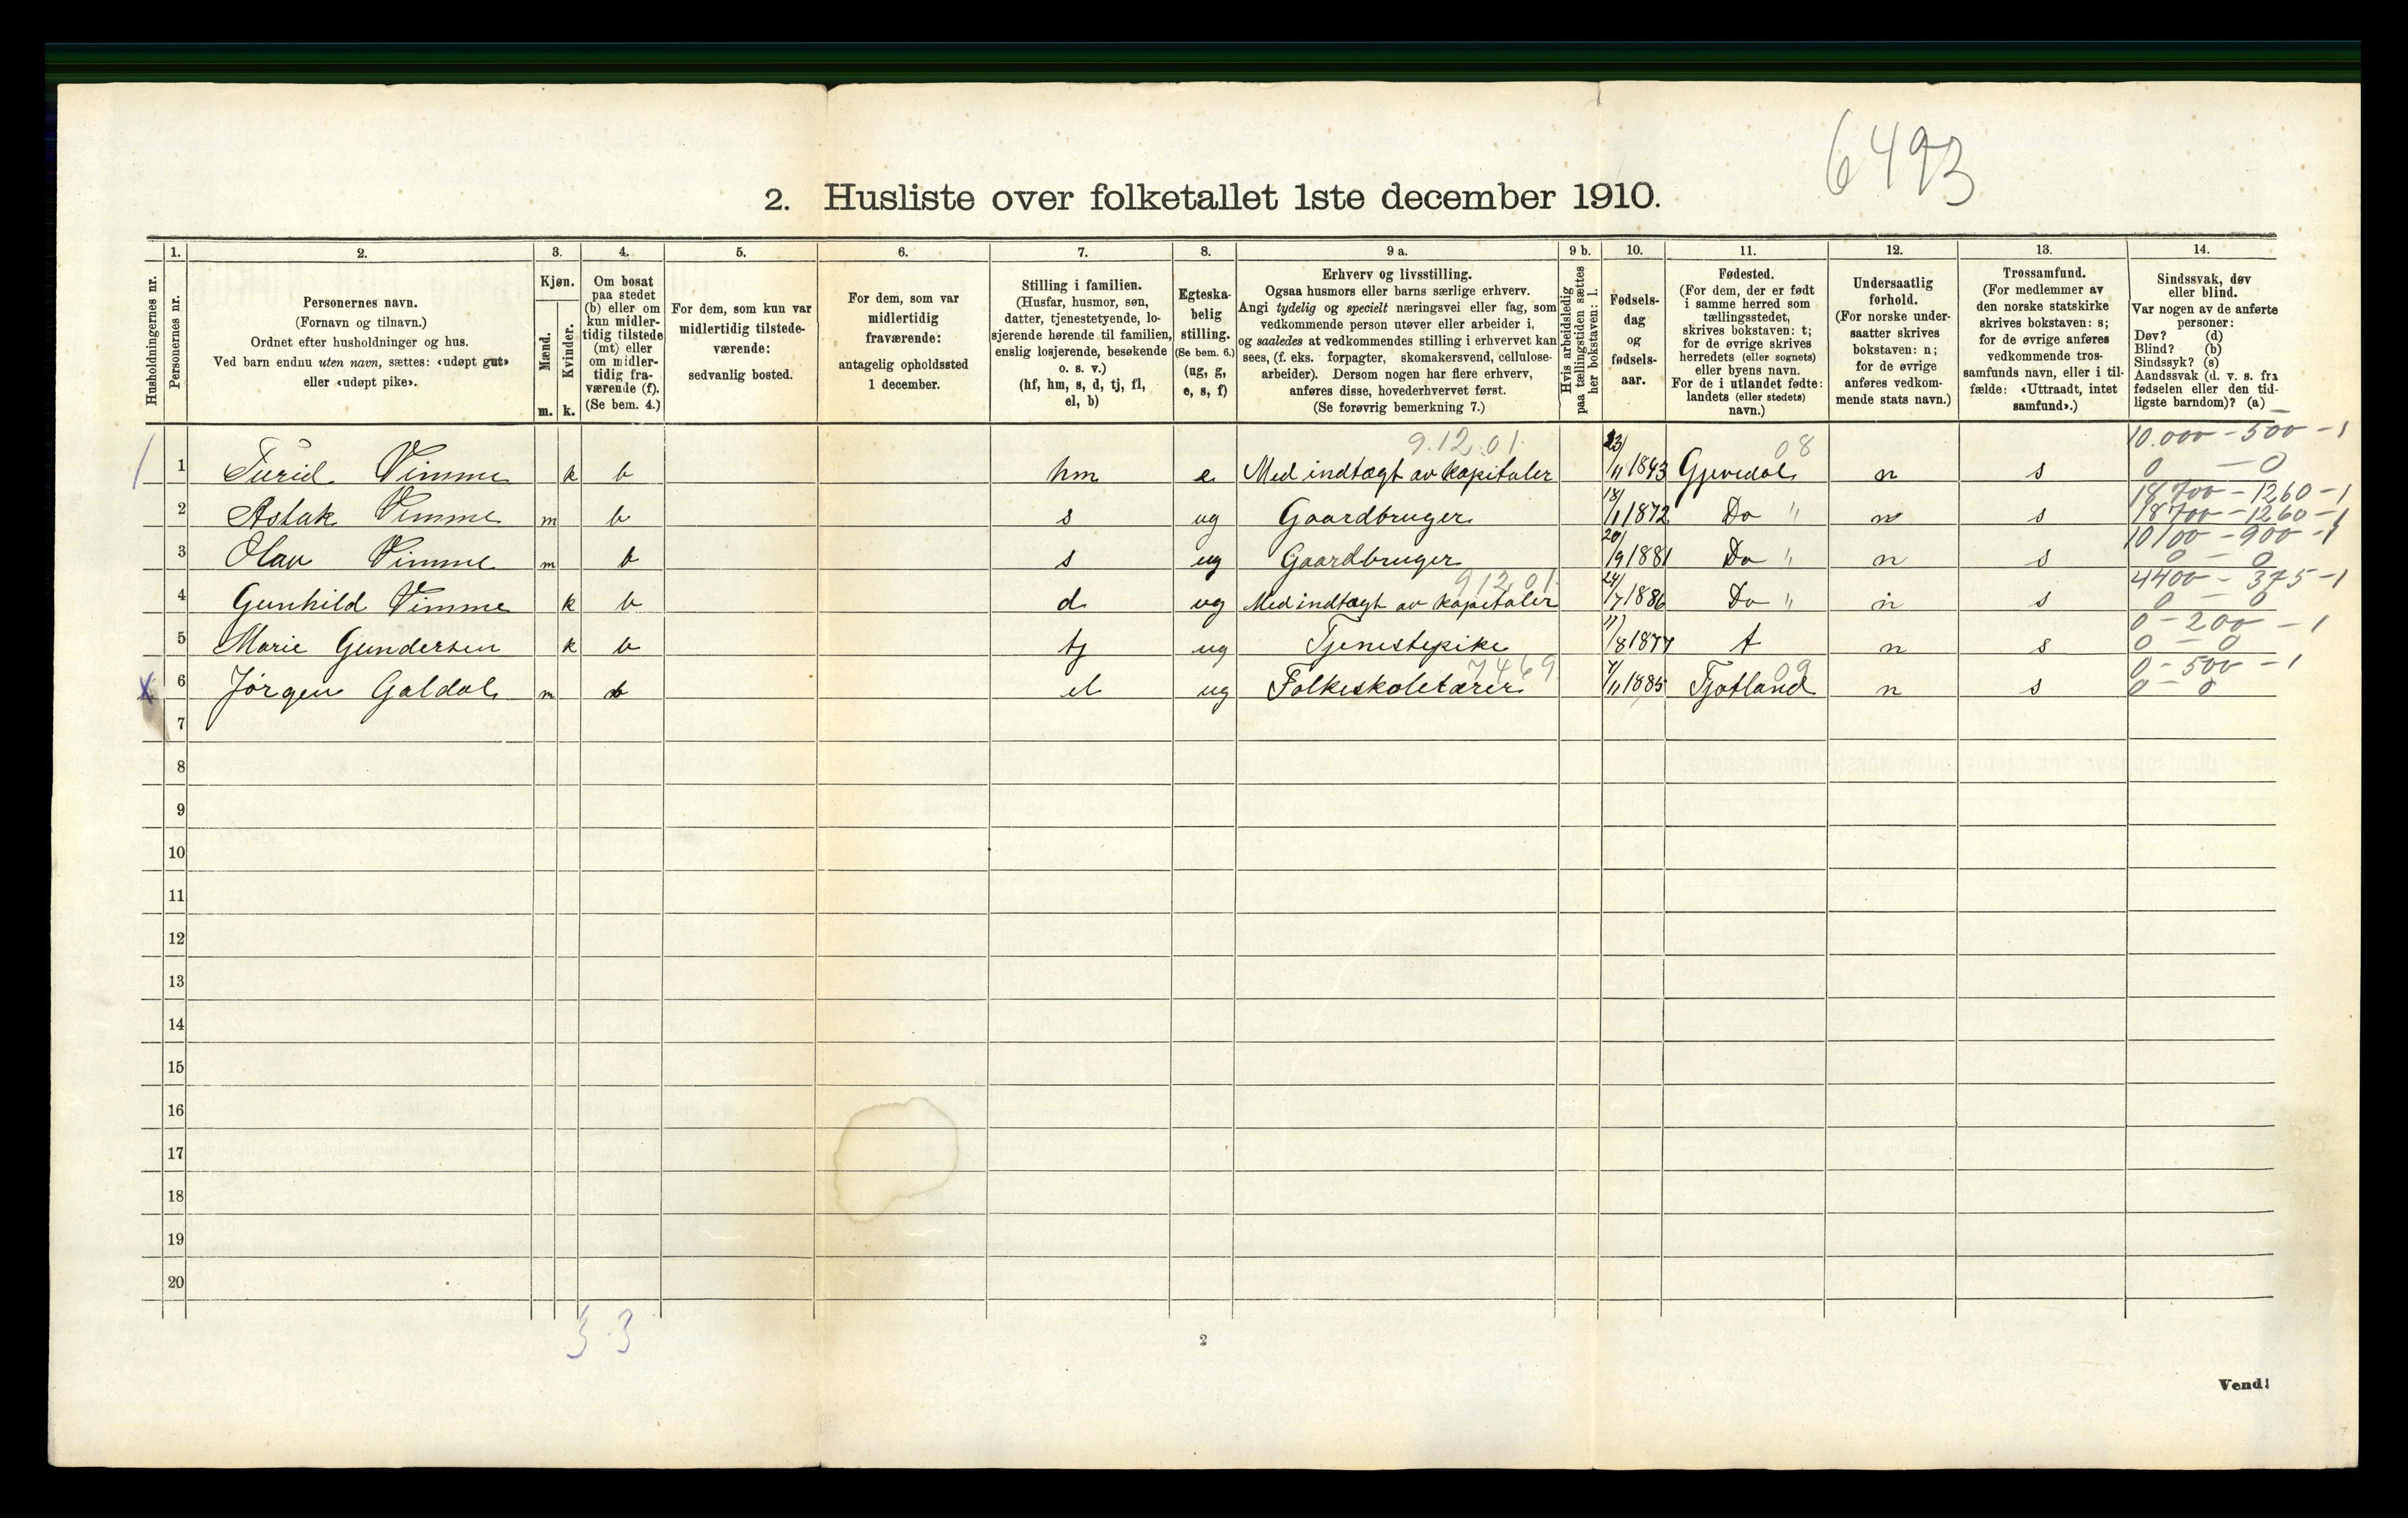 6493
2. Husliste over folketallet 1ste december 1910.
Husholdningernes nr.
1.
Personernes nr.
2.
Personernes navn.
(Fornavn og tilnavn.)
Ordnet efter husholdninger og hus.
Ved barn endnu uten navn, sættes: «udøpt gut»
eller «udøpt pike».
3.
Kjøn.
Mænd.
m.
Kvinder.
k.
4.
Om bosat
paa stedet
(b) eller om
kun midler-
tidig tilstede
(mt) eller
om midler-
tidig fra-
værende (f).
(Se bem. 4.)
5.
For dem, som kun var
midlertidig tilstede-
værende:
sedvanlig bosted.
6.
For dem, som var
midlertidig
fraværende:
antagelig opholdssted
1 december.
7.
Stilling i familien.
(Husfar, husmor, søn,
datter, tjenestetyende, lo-
sjerende hørende til familien,
enslig losjerende, besøkende
o. s. v.)
(hf, hm, s, d, tj, fl,
el, b)
8.
Egteska-
belig
stilling.
(Se bem. 6.)
(ug, g,
e, s, f)
9 a.
Erhverv og livsstilling.
Ogsaa husmors eller barns særlige erhverv.
Angi tydelig og specielt næringsvei eller fag, som
vedkommende person utøver eller arbeider i,
og saaledes at vedkommendes stilling i erhvervet kan
sees, (f. eks. forpagter, skomakersvend, cellulose-
arbeider). Dersom nogen har flere erhverv,
anføres disse, hovederhvervet først.
(Se forøvrig bemerkning 7.)
9 b.
Hvis arbeidsledig
paa tællingstiden sættes
her bokstaven: l.
10.
Fødsels-
dag
og
fødsels-
aar.
11.
Fødested.
(For dem, der er født
i samme herred som
tællingsstedet,
skrives bokstaven: t;
for de øvrige skrives
herredets (eller sognets)
eller byens navn.
For de i utlandet fødte:
landets (eller stedets)
navn.)
12.
Undersaatlig
forhold.
(For norske under-
saatter skrives
bokstaven: n;
for de øvrige
anføres vedkom-
mende stats navn.)
13.
Trossamfund.
(For medlemmer av
den norske statskirke
skrives bokstaven: s;
for de øvrige anføres
vedkommende tros-
samfunds navn, eller i til-
fælde: «Uttraadt, intet
samfund».)
14.
Sindssvak, døv
eller blind.
Var nogen av de anførte
personer:
Døv? (d)
Blind? (b)
Sindssyk? (s)
Aandssvak (d. v. s. fra
fødselen eller den tid-
ligste barndom)? (a)
9.12.01. 08 10.000 - 500 - 1
1 Turid Vimme k b hm e Med indtægt av kapitaler 23/11 1843 Gjøvedal n s 0 - 0
18700 - 1260 - 1
2 Aslak Vimme m b s ug Gaardbruger 18/1 1872 Do " n s 18700 - 1260 - 1
10100 - 900 - 1
3 Olav Vimme m b s ug Gaardbruger 20/9 1881 Do " n s 0 - 0
9.12.01. 4400 - 375 - 1
4 Gunhild Vimme k b d ug Med indtægt av kapitaler 24/7 1886 Do " n s 0 - 0
0 - 200 - 1
5 Marie Gundersen k b tj ug Tjenestepike 11/8 1877 t n s 0 - 0
7469 09 0 - 500 - 1
6 Jörgen Galdal m b el ug Folkeskolelærer 4/11 1885 Tjotland n s 0 - 0
7
8
9
10
11
12
13
14
15
16
17
18
19
20
3 3
2
Vend!